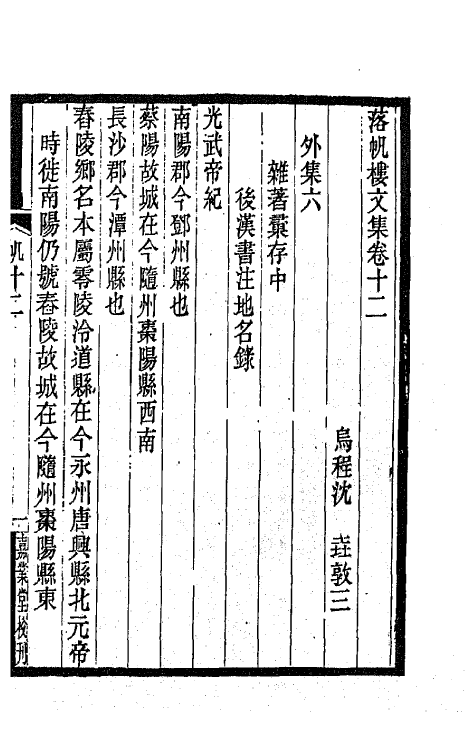 落帆樓文集卷十二
烏程沈　垚敦三
外集六
雜著藳存中
後漢書注地名錄
光武帝紀
南陽郡今鄧州縣也
蔡陽故城在今隨州棗陽縣西南
長沙郡今潭州縣也
舂陵鄉名本屬零陵泠道縣在今永州唐興縣北元帝
時徙南陽仍號舂陵故城在今隨州棗陽縣東
帆十二
一
嘉業堂校刊